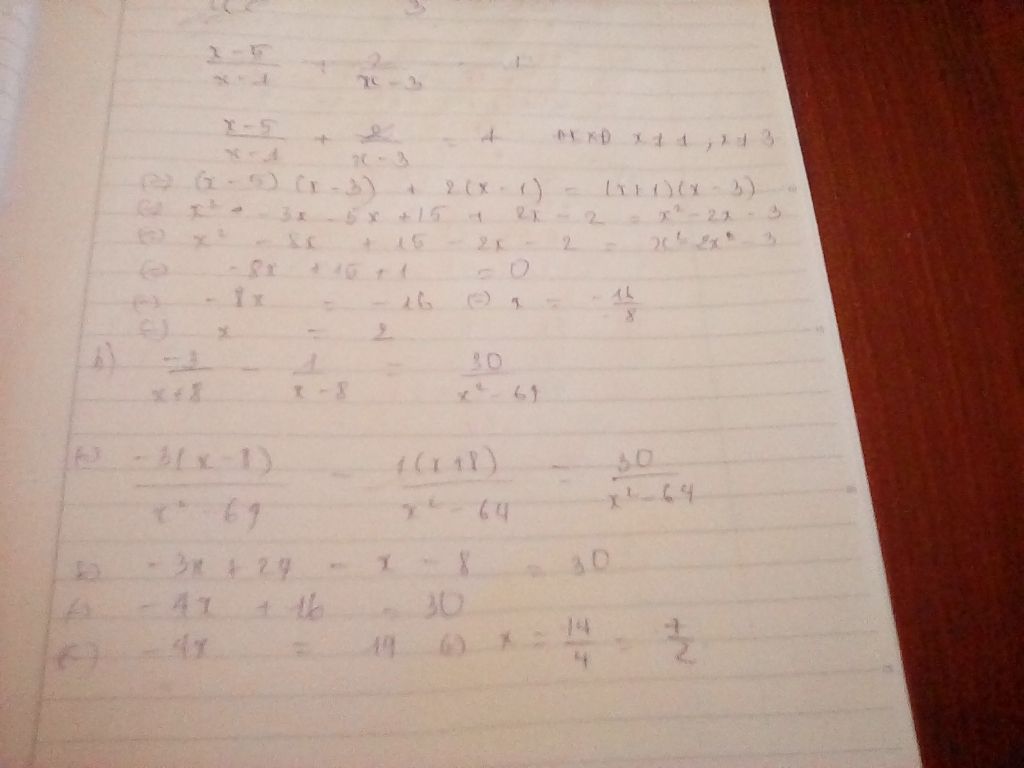 x-5/x-1 + 2/x-3 = 1
x-5/x-1 + 2/x-3 = 1 ĐKXĐ x≠1; x≠3
(=) (x-5)(x-3) + 2(x-1) = (x+1)(x-3)
(=) x² - 3x - 5x + 15 + 2x - 2 = x² - 2x - 3
(=) x² - 8x + 15 - 2x - 2 = x² - 2x² - 3
(=) -8x + 15 + 1 = 0
(=) -8x = -16 (=) x = -16/-8
(=) x = 2
b) -3/x+8 - 1/x-8 = 30/x²-64
(=) -3(x-8)/x²-64 - 1(x+8)/x²-64 = 30/x²-64
(=) -3x + 24 - x - 8 = 30
(=) -4x + 16 = 30
(=) -4x = 14 (=) x = 14/4 = 7/2